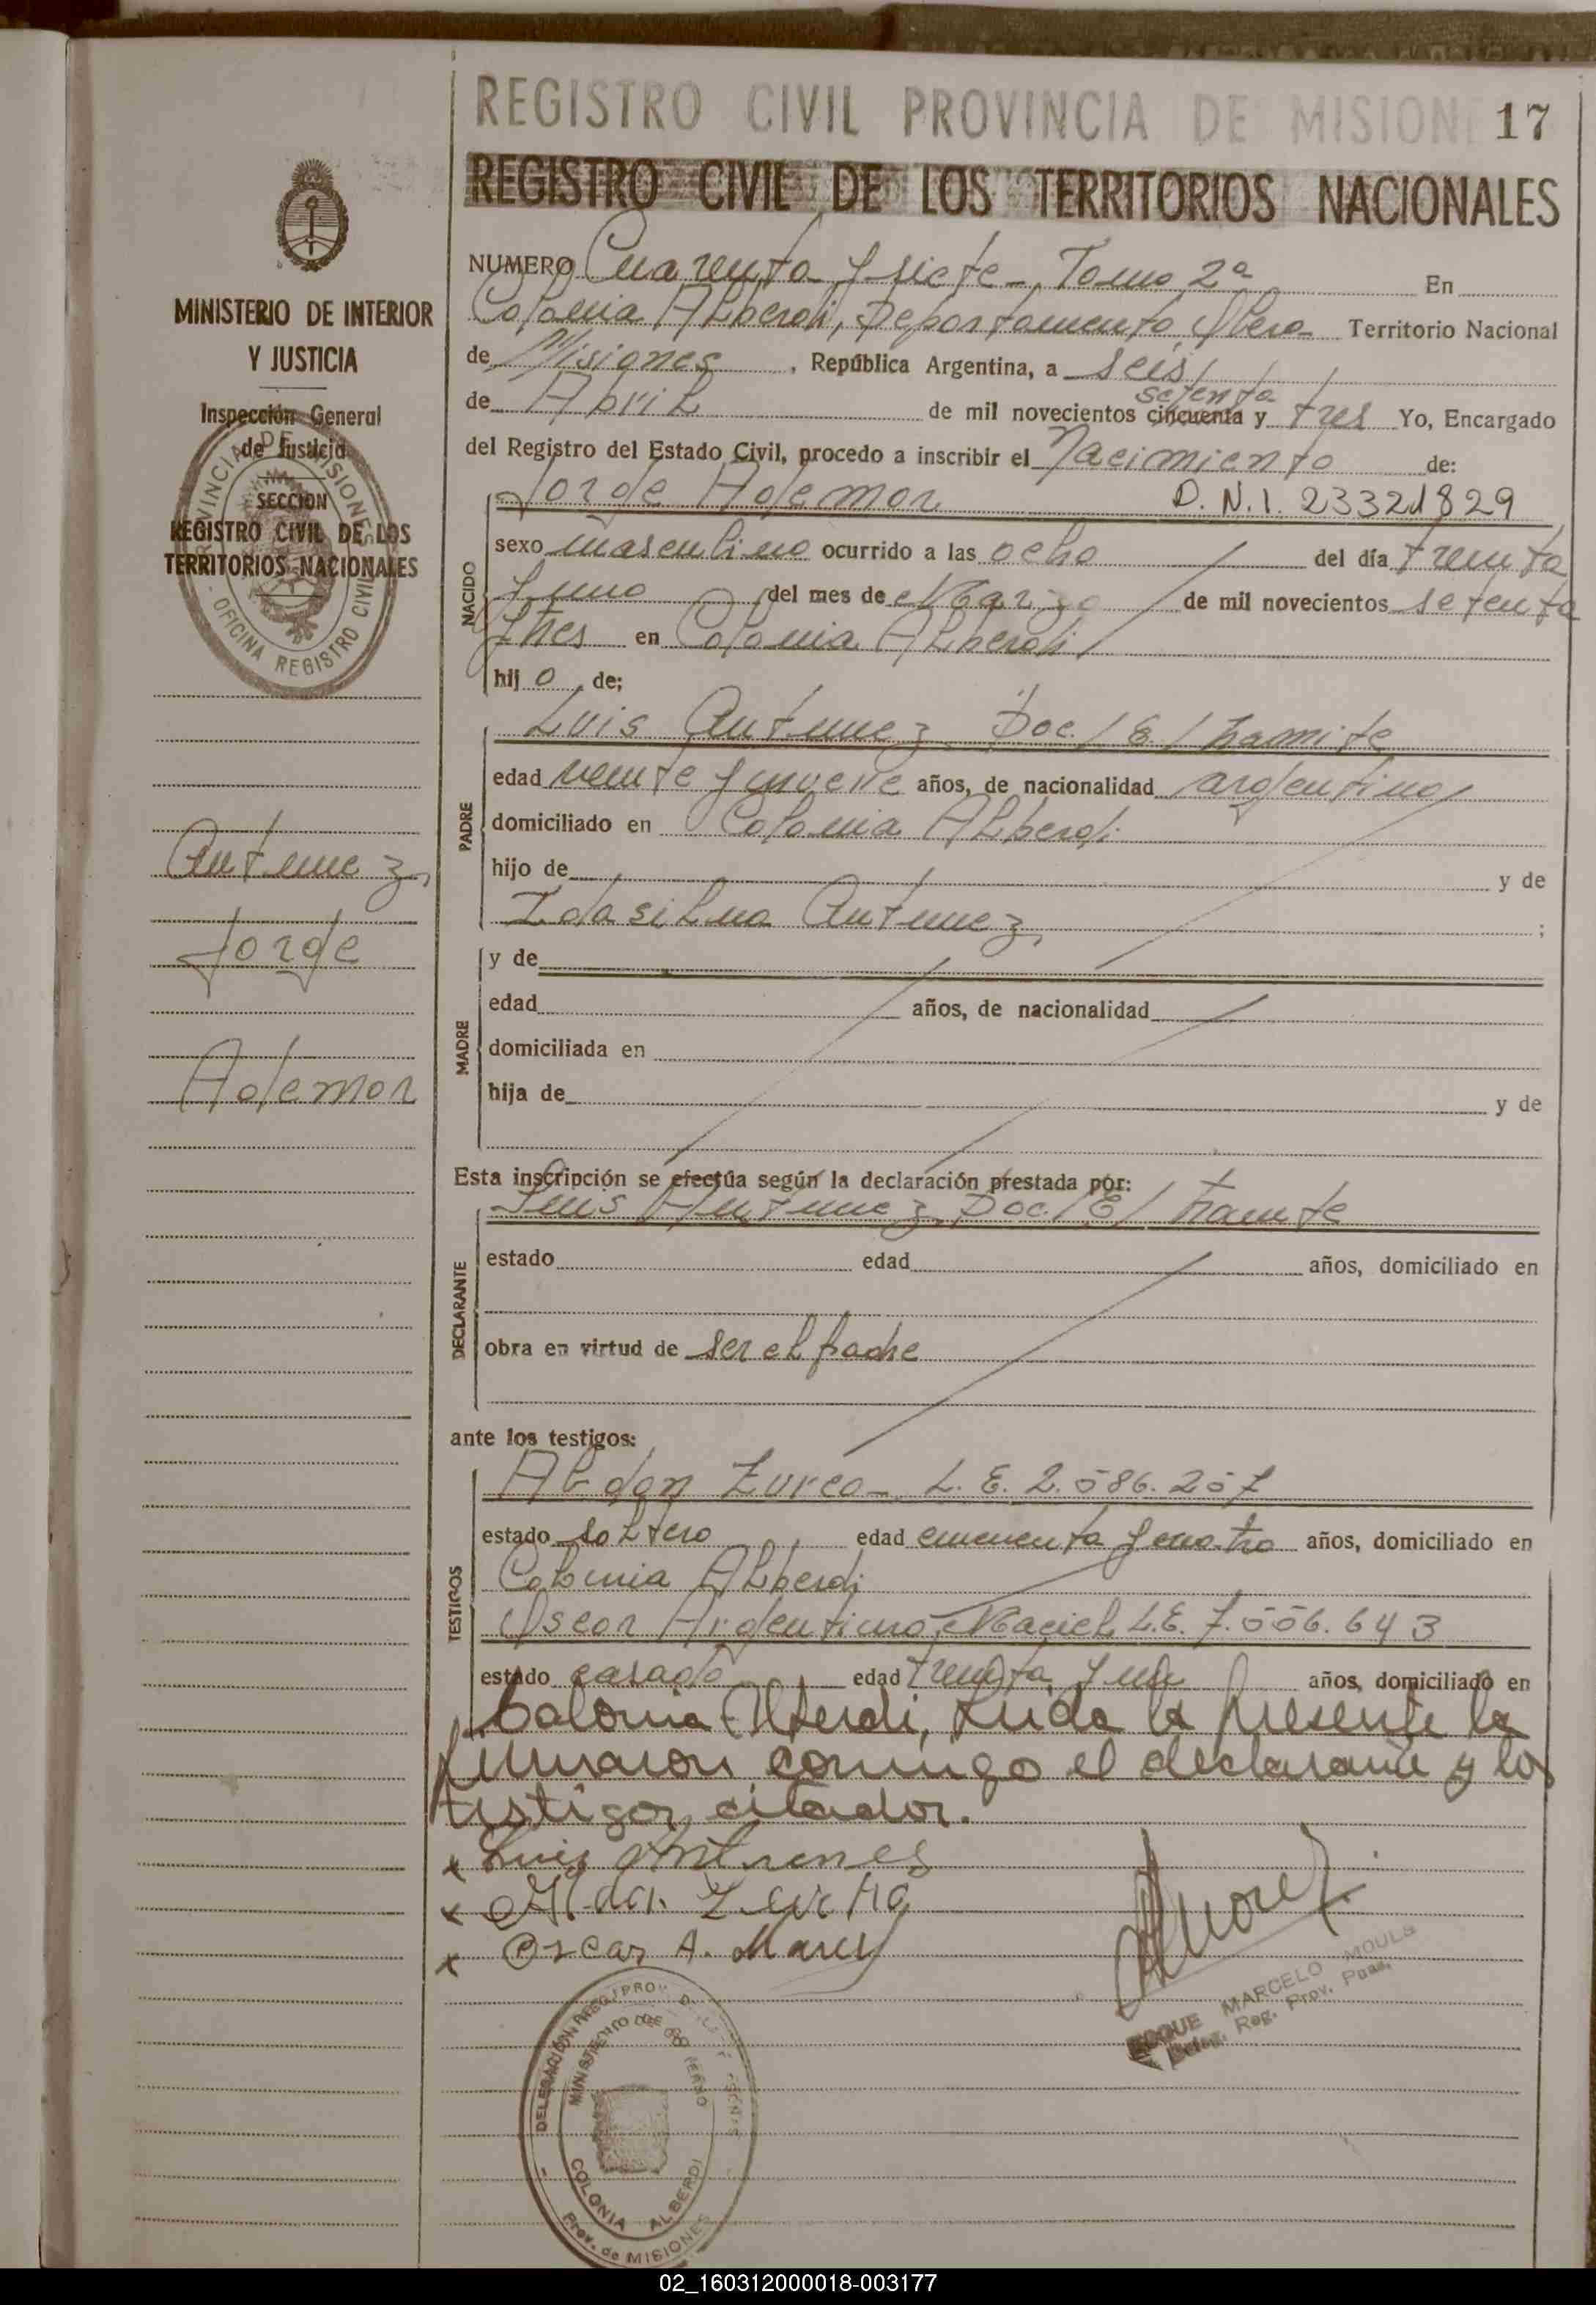 REGISTRO CIVIL PROVINCIA DE MISION
17
REGISTRO CIVIL DE LOS TERRITORIOS NACIONALES
MINISTERIO DE INTERIOR
Y JUSTICIA
Inspección General
de Justicia
SECCIÓN
REGISTRO CIVIL DE LOS
TERRITORIOS NACIONALES
PROVINCIA DE MISIONES
OFICINA REGISTRO CIVIL
Antunez,
Jorge
Ademar
NUMERO Cuarenta y siete - Tomo 2º En
Colonia Alberdi, Departamento Obera Territorio Nacional
de Misiones, República Argentina, a seis
setenta
de Abril de mil novecientos cincuenta y tres Yo, Encargado
del Registro del Estado Civil, procedo a inscribir el Nacimiento de:
Jorge Ademar D.N.I. 23321829
NACIDO
sexo masculino ocurrido a las ocho del día treinta
y uno del mes de Marzo de mil novecientos setenta
y tres en Colonia Alberdi
hij o de;
PADRE
Luis Antunez Doc/E/tramite
edad veinte y nueve años, de nacionalidad argentino
domiciliado en Colonia Alberdi
hijo de y de
Antunez ;
MADRE
y de
edad años, de nacionalidad
domiciliada en
hija de y de
Esta inscripción se efectúa según la declaración prestada por:
DECLARANTE
Luis Antunez Doc/E/tramite
estado edad años, domiciliado en
obra en virtud de ser el padre
ante los testigos:
TESTIGOS
Abdon L.E. 2.586.257
estado soltero edad cincuenta y cuatro años, domiciliado en
Colonia Alberdi
Oscar Argentino Maciel L.E. 7.556.643
estado casado edad treinta y años, domiciliado en
Colonia Alberdi, Leida la presente la
firmaron conmigo el declarante y los
testigos citados.
x Luis Antunes
x
x Oscar A.
ROQUE MARCELO
Deleg. Reg. Prov.
DELEGACIÓN
MINISTERIO DE GOBIERNO
COLONIA ALBERDI
Prov. de MISIONES
02_160312000018-003177